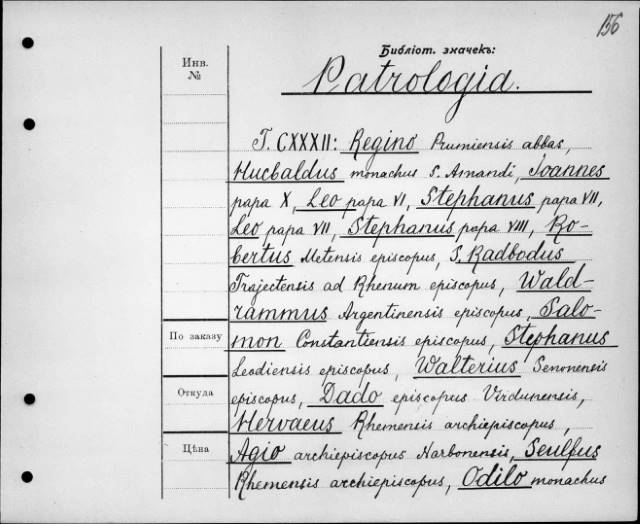 156
Библіот. значекъ:
Инв.
№
Patrologia.
T. CXXXII: Regino Prumiensis abbas,
Hucbaldus monachus S. Amandi, Joannes
papa X, Leo papa VI, Stephanus papa VII,
Leo papa VII, Stephanus papa VIII, Ro-
bertus Metensis episcopus, S. Radbodus
Trajectensis ad Rhenum episcopus, Wald-
rammus Argentinensis episcopus, Salo-
По заказу
mon Constantiensis episcopus, Stephanus
Leodiensis episcopus, Walterius Senonensis
Откуда
episcopus, Dado episcopus Virdunensis,
Hervaeus Rhemensis archiepiscopus,
Цѣна
Agio archiepiscopus Narbonensis, Seulfus
Rhemensis archiepiscopus, Odilo monachus